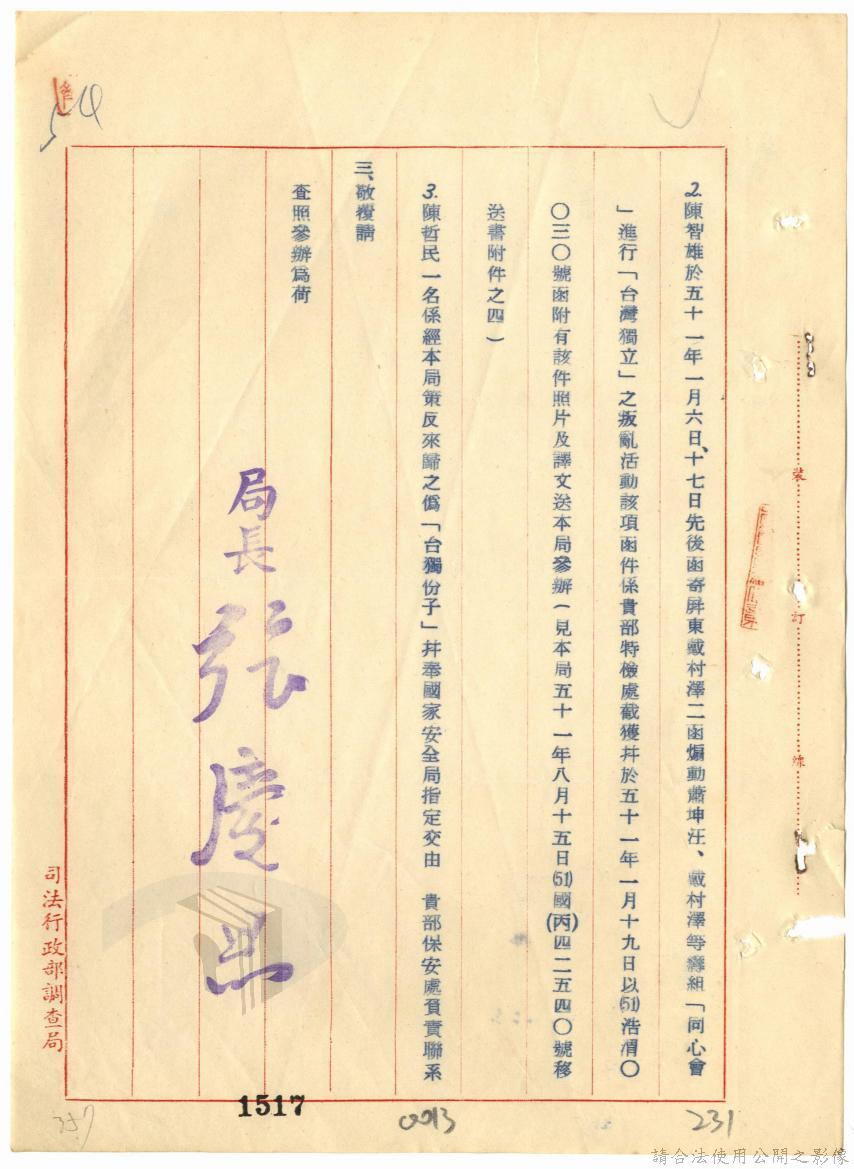 2.陳智雄於五十一年一月六日、十七日先後函寄屏東戴村澤二函煽動蕭坤汪、戴村澤等籌組「同心會
」進行「台灣獨立」之叛亂活動該項函件係貴部特檢處截獲幷於五十一年一月十九日以(51)浩渭〇
〇三〇號函附有該件照片及譯文送本局參辦(見本局五十一年八月十五日(51)國(丙)四二五四〇號移
送書附件之四)
3.陳哲民一名係經本局策反來歸之僞「台獨份子」幷奉國家安全局指定交由 貴部保安處負責聯系
三、敬覆請
查照參辦爲荷
局長 張慶
司法行政部調查局
裝
訂
線
1517
0013
231
請合法使用公開之影像